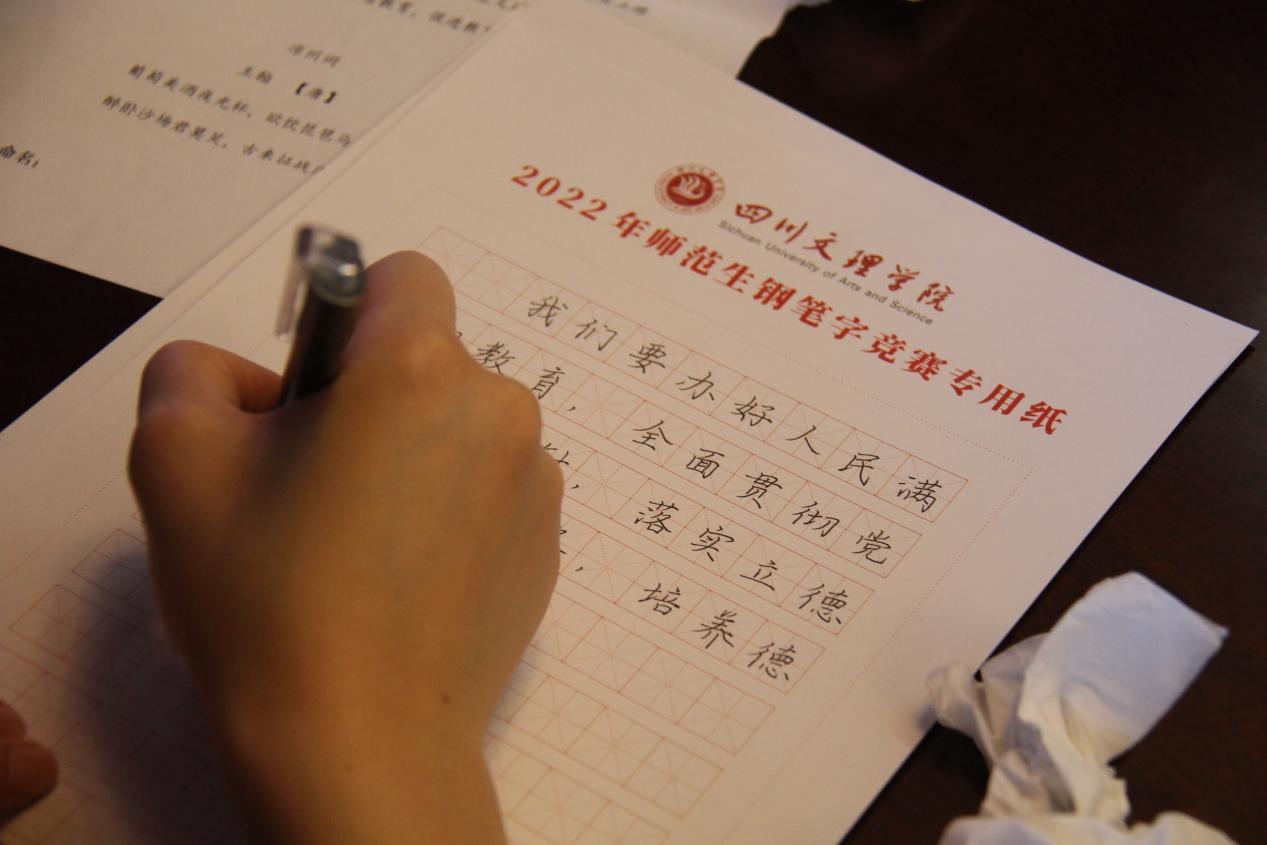 教育，促进教
凉州词
王翰 【唐】
葡萄美酒夜光杯，欲饮琵琶马
醉卧沙场君莫笑，古来征战
命名：
四川文理学院
Sichuan University of Arts and Science
2022年师范生钢笔字竞赛专用纸
我们要办好人民满
教育，全面贯彻党
，落实立德
，培养德